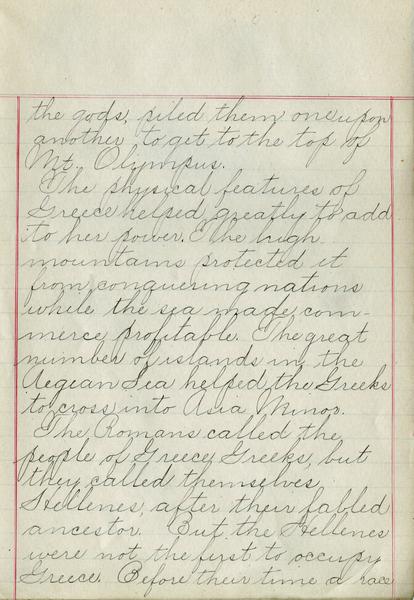 the gods, piled them one upon
another to get to the top of
Mt. Olympus.
The physical features of
Greece helped greatly to add
to her power. The high
mountains protected it
from conquering nations
while the sea made com-
merce profitable. The great
number of islands in the
Aegean Sea helped the Greeks
to cross into Asia Minor.
The Romans called the
people of Greece, Greeks, but
they called themselves
Hellenes, after their fabled
ancestor. But the Hellenes
were not the first to occupy
Greece. Before their time a race